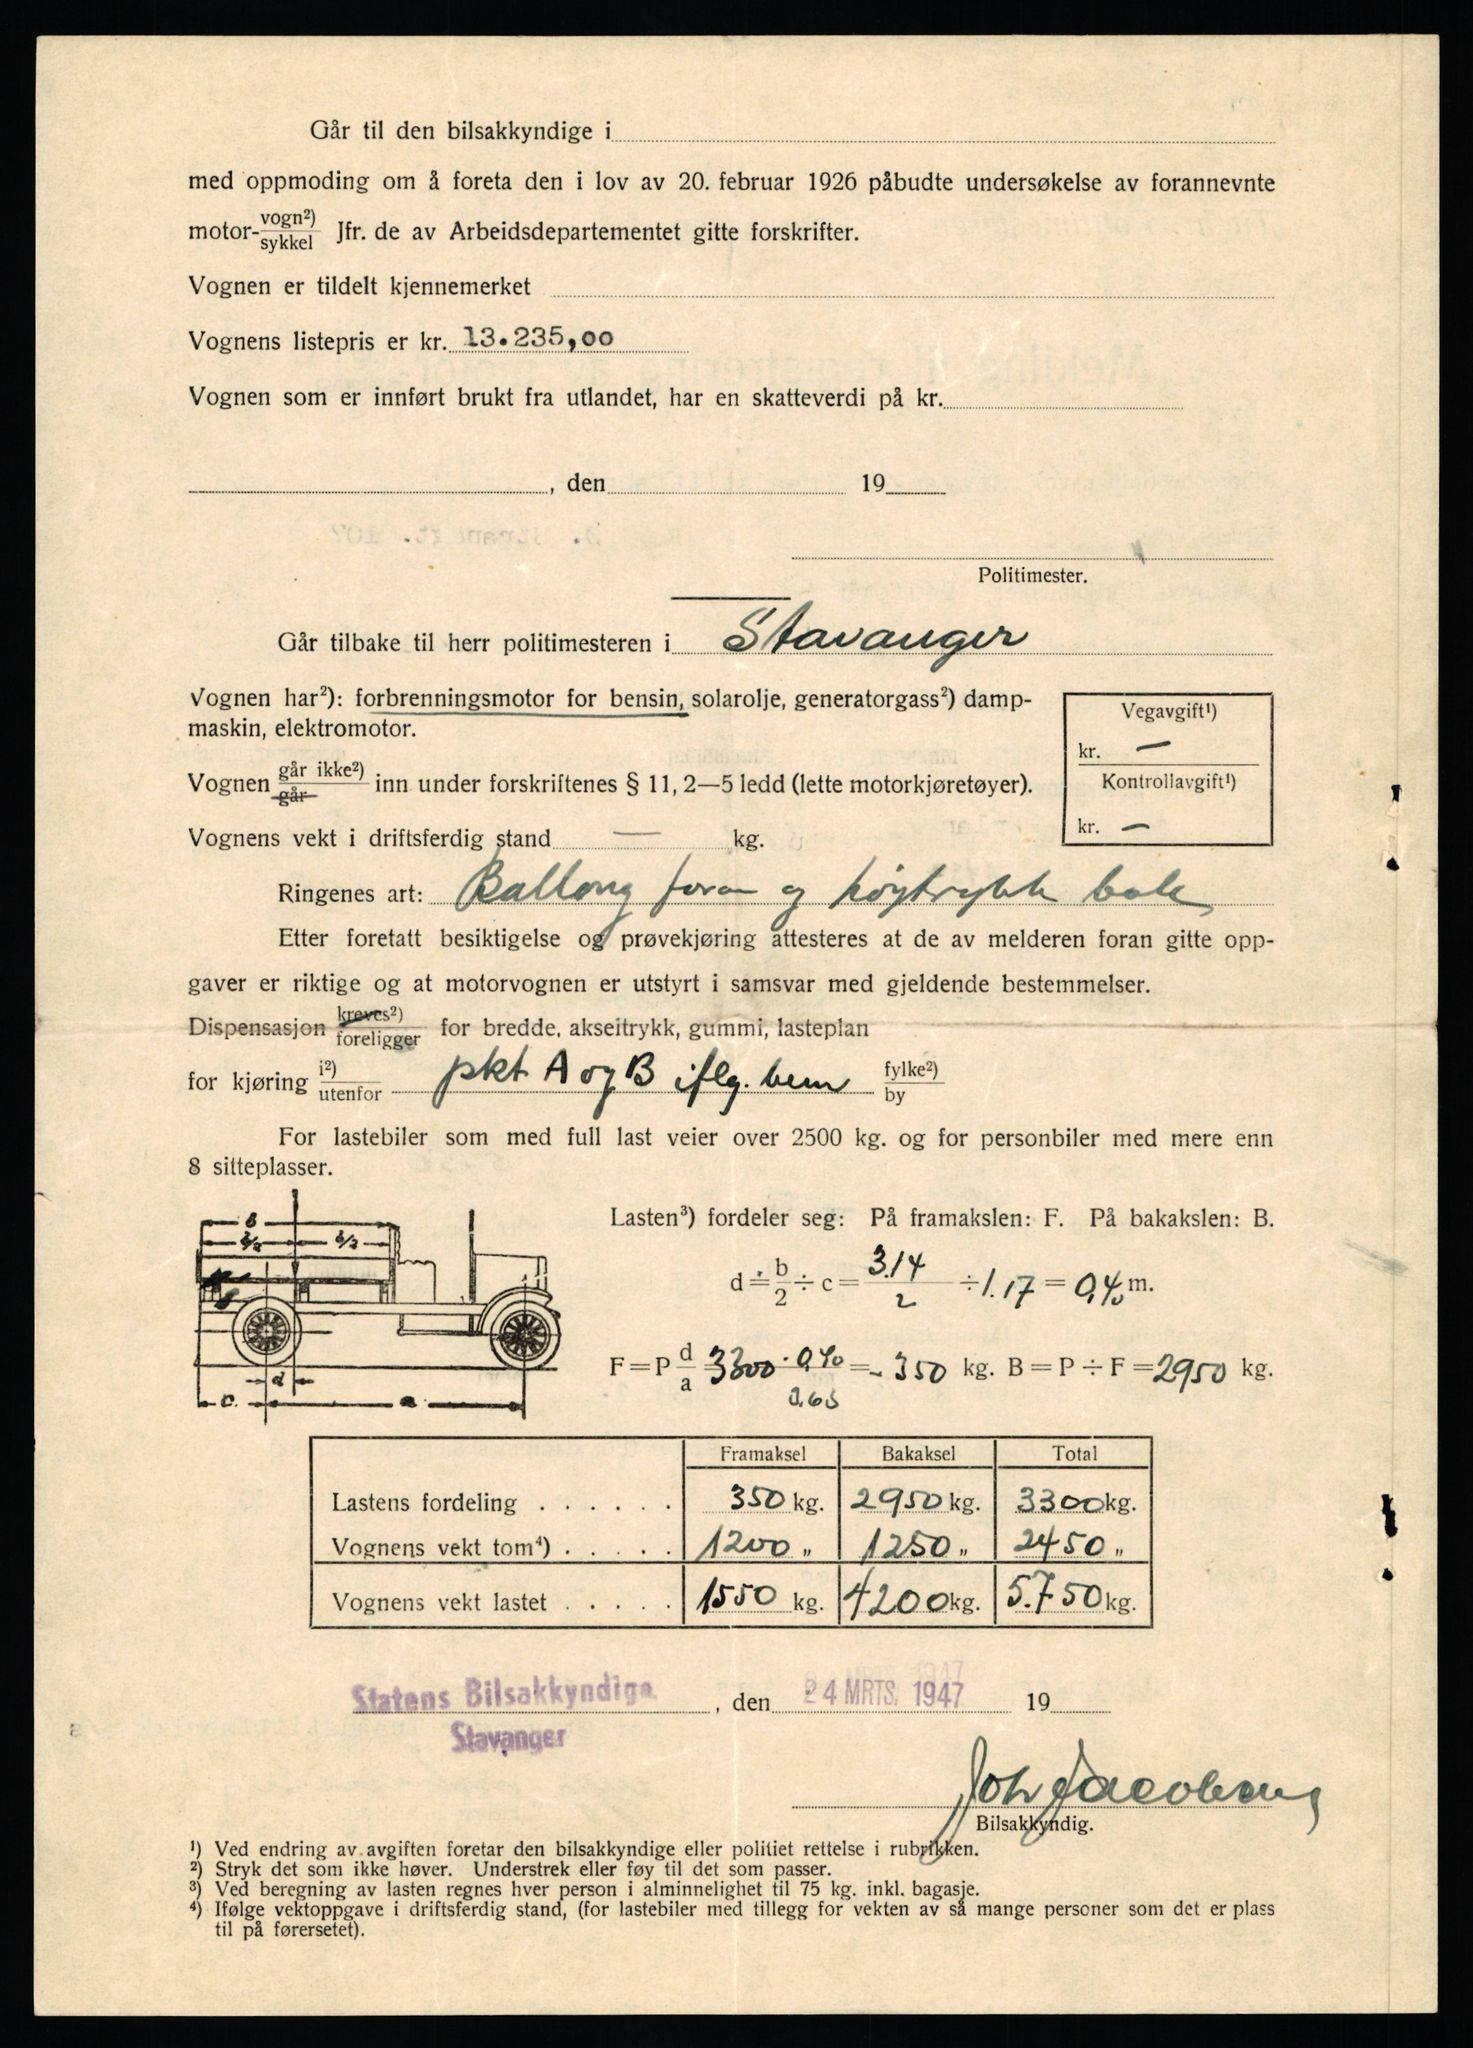 Går til den bilsakkyndige i
med oppmoding om å foreta den i lov av 20. februar 1926 påbudte undersøkelse av forannevnte
motor- vogn²) / sykkel Jfr. de av Arbeidsdepartementet gitte forskrifter.
Vognen er tildelt kjennemerket
Vognens listepris er kr. 13.235,00
Vognen som er innført brukt fra utlandet, har en skatteverdi på kr.
, den 19
Politimester.
Går tilbake til herr politimesteren i Stavanger
Vognen har²): forbrenningsmotor for bensin, solarolje, generatorgass²) damp-
maskin, elektromotor.
Vegavgift¹)
kr. —
Vognen går ikke²) / går inn under forskriftenes § 11, 2—5 ledd (lette motorkjøretøyer).
Kontrollavgift¹)
kr. —
Vognens vekt i driftsferdig stand — kg.
Ringenes art: Ballong foran og høytrykk bak
Etter foretatt besiktigelse og prøvekjøring attesteres at de av melderen foran gitte opp-
gaver er riktige og at motorvognen er utstyrt i samsvar med gjeldende bestemmelser.
Dispensasjon kreves²) / foreligger for bredde, akseltrykk, gummi, lasteplan
for kjøring i²) / utenfor pkt A og B iflg. bem fylke²) / by
For lastebiler som med full last veier over 2500 kg. og for personbiler med mere enn
8 sitteplasser.
Lasten³) fordeler seg: På framakslen: F. På bakakslen: B.
b
b/2 b/2
d ÷ b/2 ÷ c = 3.14/2 ÷ 1.17 = 0,40 m.
F = P d/a 3300 · 0,40 / 3.63 = - 350 kg. B = P ÷ F = 2950 kg.
d
c. a
Framaksel Bakaksel Total
Lastens fordeling . . . . . . 350 kg. 2950 kg. 3300 kg.
Vognens vekt tom⁴) . . . . . 1200 „ 1250 „ 2450 „
Vognens vekt lastet . . . . . 1550 kg. 4200 kg. 5.750 kg.
Statens Bilsakkyndige , den 24 MRTS. 1947 19
Stavanger
Joh Jacobsen
Bilsakkyndig.
¹) Ved endring av avgiften foretar den bilsakkyndige eller politiet rettelse i rubrikken.
²) Stryk det som ikke høver. Understrek eller føy til det som passer.
³) Ved beregning av lasten regnes hver person i alminnelighet til 75 kg. inkl. bagasje.
⁴) Ifølge vektoppgave i driftsferdig stand, (for lastebiler med tillegg for vekten av så mange personer som det er plass
til på førersetet).